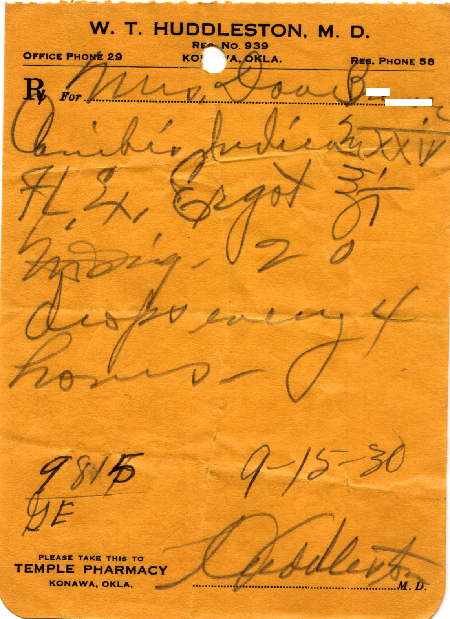 W. T. HUDDLESTON, M. D.
REG. NO. 939
OFFICE PHONE 29 KONAWA, OKLA. RES. PHONE 58
Rx For Mrs. Dove
Canibis Indica XXIV
Fl. Ex. Ergot ℥i
M Sig - 20
drops every 4
hours -
9815 9-15-30
GE
PLEASE TAKE THIS TO
TEMPLE PHARMACY
KONAWA, OKLA.
Huddleston M. D.